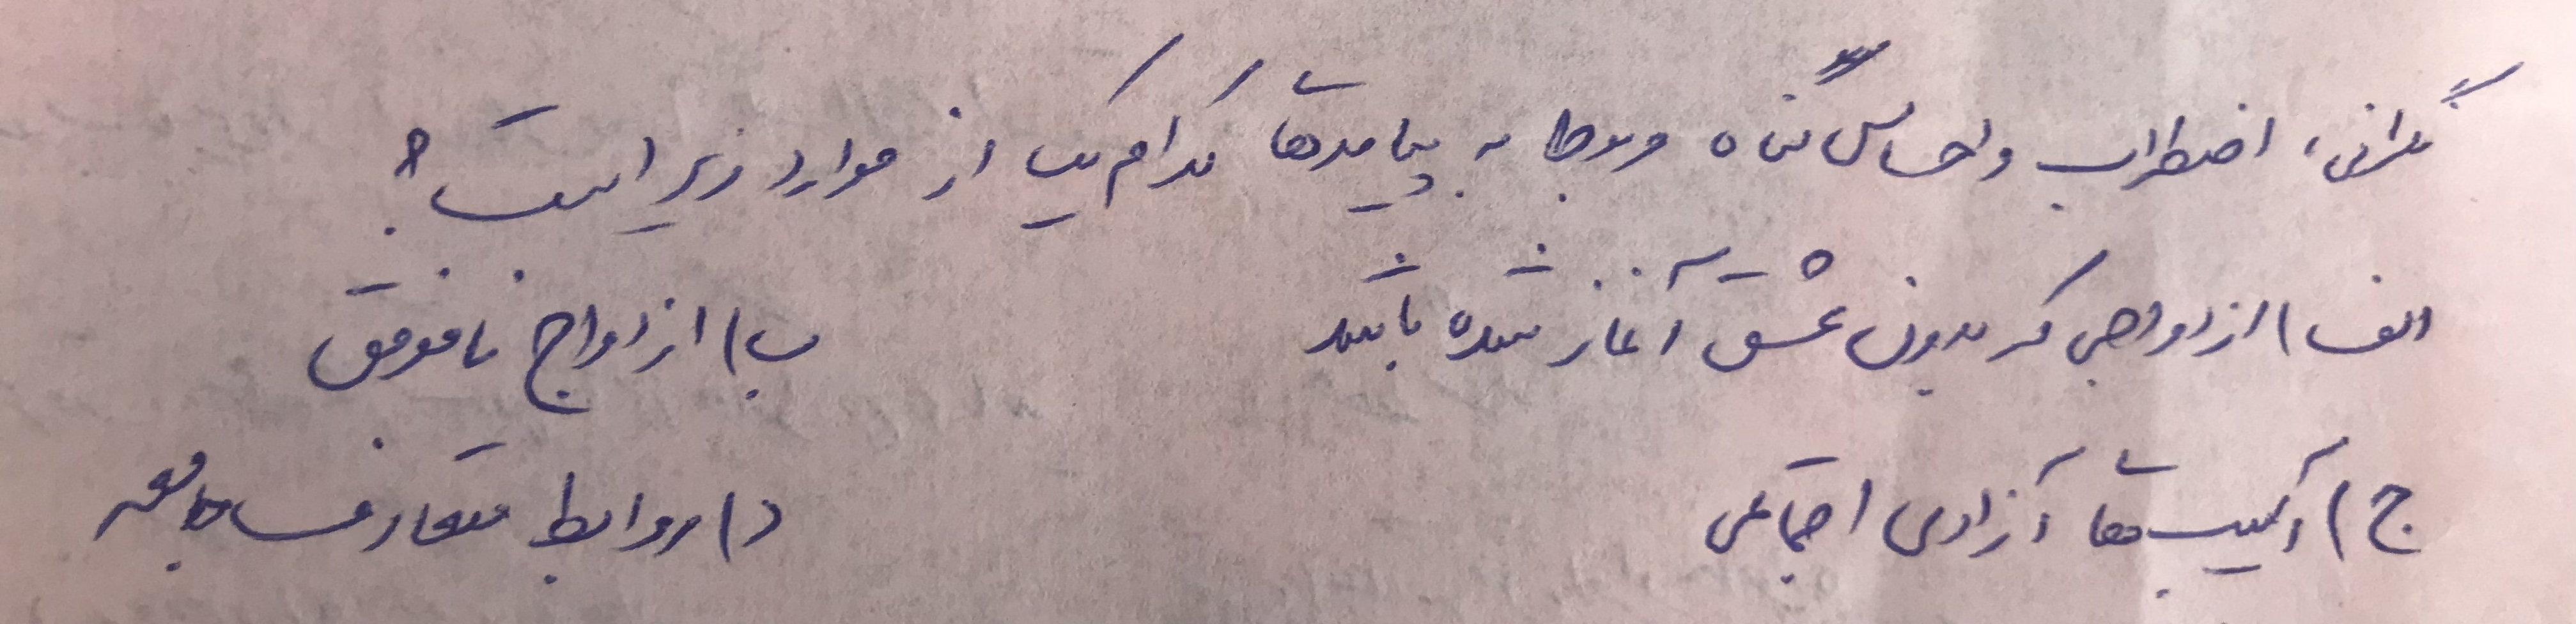 نگرانی، اضطراب و احساس گناه مربوط به پیامدهای کدام یک از موارد زیر است؟
الف) ازدواجی که بدون عشق آغاز شده باشد ب) ازدواج ناموفق
ج) آسیب‌های آزادی اجتماعی د) روابط متعارف جامعه